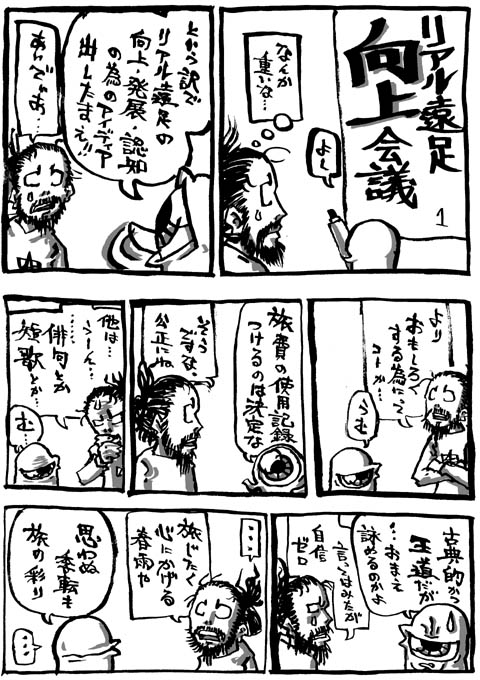 リアル遠足
向上会議
1
よし
なんか
重いな…
とゆう訳で
リアル遠足の
向上・発展・認知
の為のアイディア
出したまえ!!
あんでぃあ…
より
おもしろく
する為にって
コトか…
うむ
旅費の使用記録
つけるのは決定な
そう
ですな。
公正にね
他は…
うーん…
俳句とか
短歌とか
む…
古典的かつ
王道だが
…おまえ
詠めるのかよ
言ってはみたが
自信
ゼロ
…
旅じたく
心にかげる
春雨や
思わぬ
季転も
旅の彩り
…